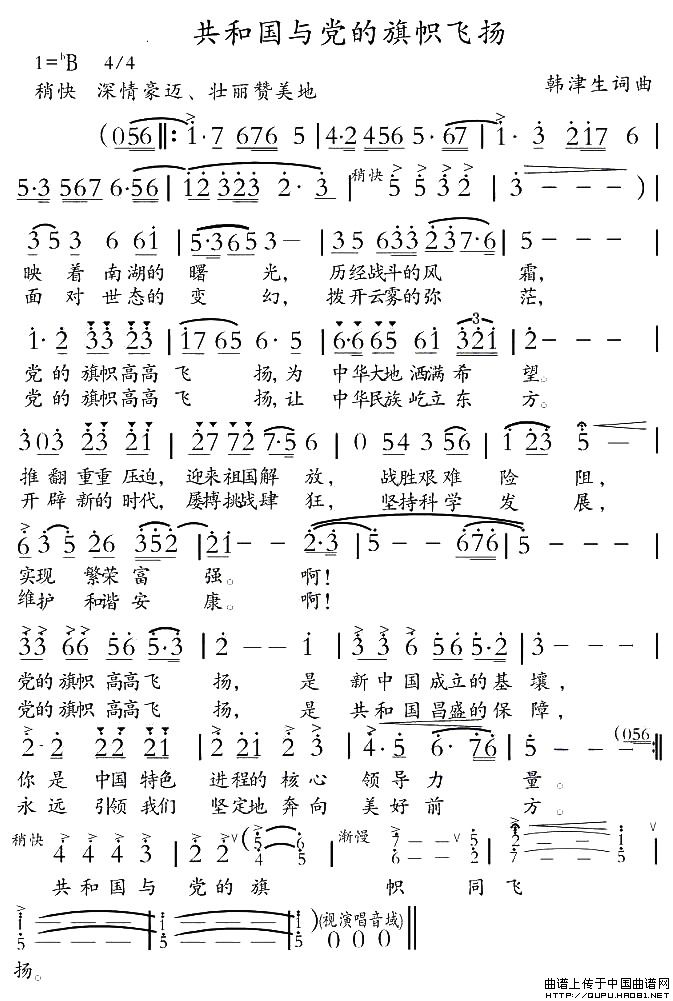 共和国与党的旗帜飞扬
1=♭B 4/4
稍快 深情豪迈、壮丽赞美地
韩津生词曲
(056‖: 1·7 676 5 | 4·2 456 5·67 | 1·3 217 6 |
5·3 567 6·56 | 12 323 2·3 | 稍快 5 5 3 2 | 3 - - - ) |
3 5 3 6 61 | 5·3 65 3 - | 35 633 237·6 | 5 - - - |
映着南湖的曙光，历经战斗的风霜，
面对世态的变幻，拨开云雾的弥茫，
1·2 33 23 | 17 65 6·5 | 6·6 65 61 321 | 2 - - - |
党的旗帜高高飞扬，为中华大地洒满希望。
党的旗帜高高飞扬，让中华民族屹立东方。
3 03 23 21 | 27 72 7·5 6 | 0 54 3 56 | 1 23 5 - |
推翻重重压迫，迎来祖国解放，战胜艰难险阻，
开辟新的时代，屡搏挑战肆狂，坚持科学发展，
6 3 5 26 352 | 21 - - 2·3 | 5 - - 676 | 5 - - - |
实现繁荣富强。啊！
维护和谐安康。啊！
33 66 56 5·3 | 2 - - 1 | 3 3 6 56 5·2 | 3 - - - |
党的旗帜高高飞扬，是新中国成立的基壤，
党的旗帜高高飞扬，是共和国昌盛的保障，
2·2 22 21 | 2 21 2 3 | 4·5 6·76 | 5 - - (056 :‖
你是中国特色进程的核心领导力量。
永远引领我们坚定地奔向美好前方。
稍快 4 4 4 3 | 2 2 ∨ (5 6 | 渐慢 7 - - ∨ 5 | 2 - - 1 ∨ |
4 5 6 - - 2 7 5
共和国与党的旗帜同飞
1 - - - 1 | - - - 1 ) (视演唱音域) 0 0 0 ‖
5 5 5
扬。
曲谱上传于中国曲谱网
HTTP://QUPU.HAO81.NET